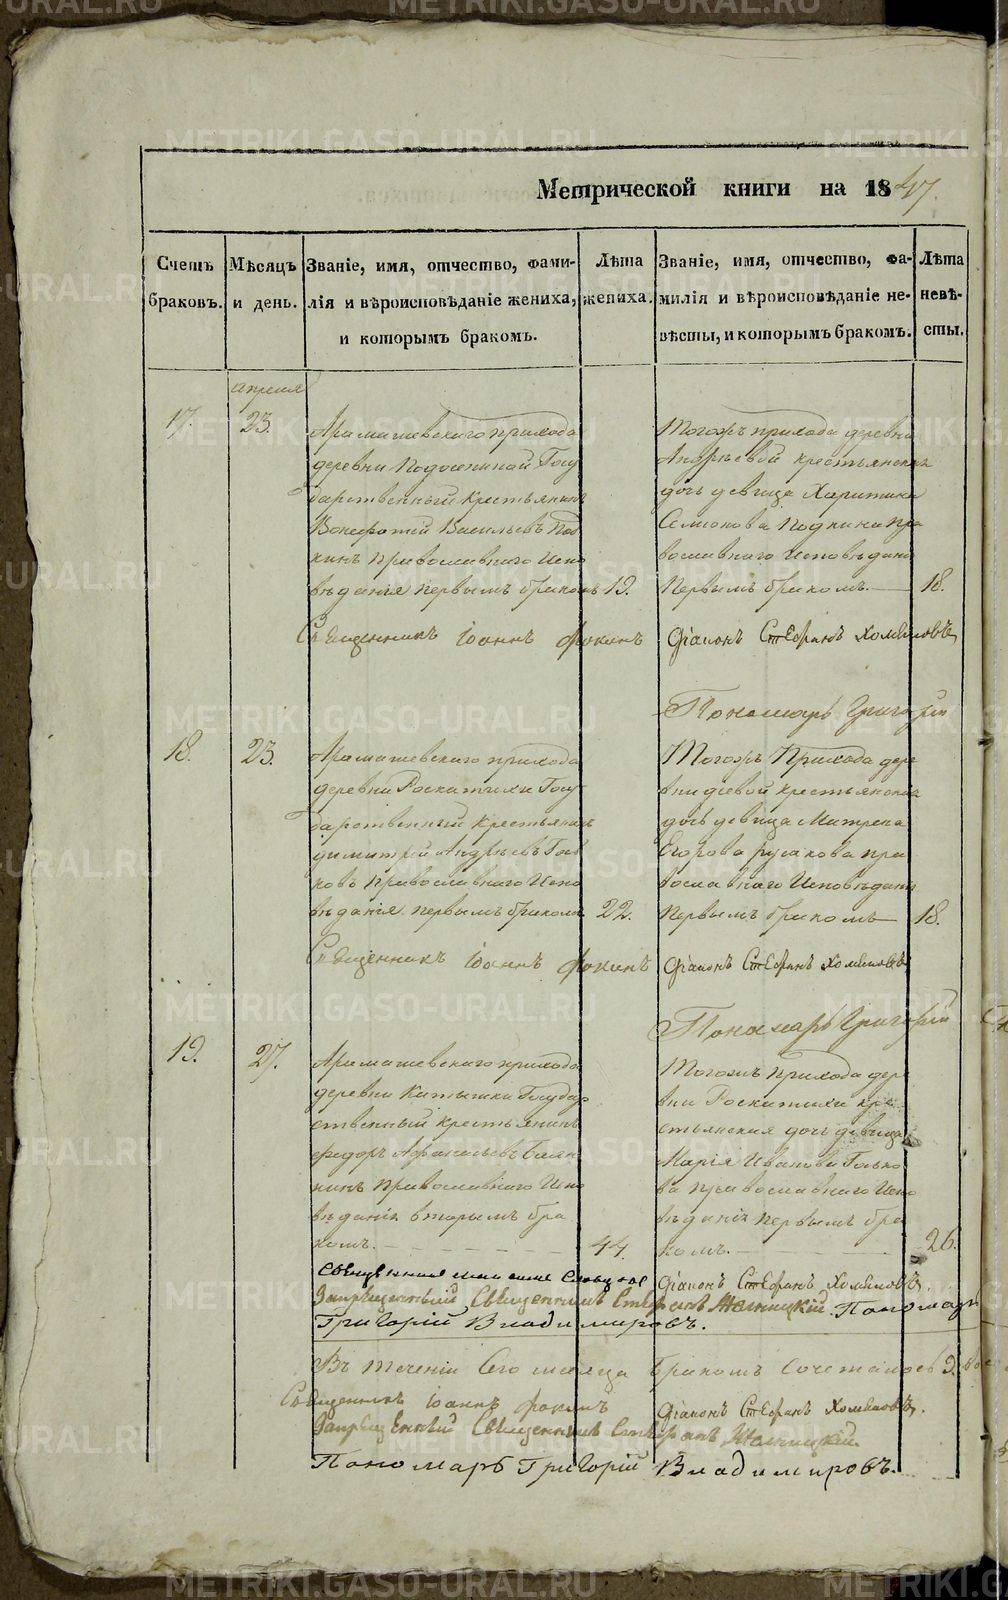 Метрической книги на 1847.
Счетъ браковъ.
Мѣсяцъ и день.
Званіе, имя, отчество, фами-
лія и вѣроисповѣданіе жениха,
и которымъ бракомъ.
Лѣта жениха.
Званіе, имя, отчество, фа-
милія и вѣроисповѣданіе не-
вѣсты, и которымъ бракомъ.
Лѣта невѣ-
сты.
апреля
17. 23.
Арамашевскаго прихода
деревни Госу
дарственный крестьянинъ
Вонифатий Васильевъ Под
кинъ Православнаго Испо
вѣданія первымъ бракомъ 19.
Тогожъ прихода деревни
крестьянская
дочь девица Харитина
Семионова Подкина пра
вославнаго Исповѣданія
Первымъ бракомъ. 18.
Священникъ Іоаннъ Фокинъ
Діаконъ Стефанъ Хомяковъ
Пономарь Григорій
18. 23.
Арамашевскаго прихода
деревни Роскатихи Госу
дарственный крестьянинъ
Димитрій Андрѣевъ Голь
ковъ Православнаго Испо
вѣданія первымъ бракомъ 22.
Тогожъ Прихода дере
вни крестьянская
дочь девица Матрена
Егорова Русакова пра
вославнаго Исповѣданія
Первымъ бракомъ 18.
Священникъ Іоаннъ Фокинъ
Діаконъ Стефанъ Хомяковъ
Пономарь Григорій
19. 27.
Арамашевскаго прихода
деревни Косудар
ственный крестьянинъ
Федоръ Афанасьевъ
Православнаго Испо
вѣданія вторымъ бра
комъ. 44.
Тогожъ Прихода дере
вни Роскатихи кре
стьянская дочь девица
Марія Иванова Голько
ва православнаго Испо
вѣданія первымъ бра
комъ. 26.
Діаконъ Стефанъ Хомяковъ.
Запрещенный Священникъ Стефанъ Пономарь
Григорій Владимировъ.
Въ теченіи сего месяца браком сочеталось 9.
Священникъ Іоаннъ Фокинъ
Діаконъ Стефанъ Хомяковъ.
Запрещенный Священникъ Стефанъ
Пономарь Григорій Владимировъ.
METRIKI.GASO-URAL.RU